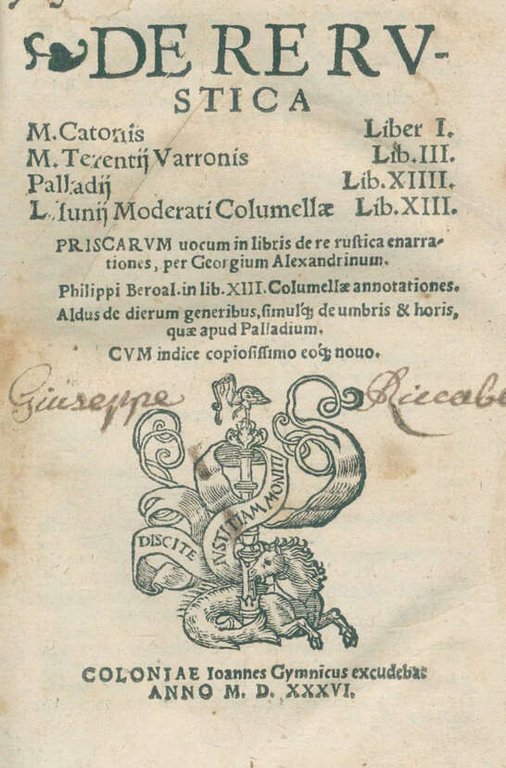 DE RE RV-
STICA
M. Catonis Liber I.
M. Terentij Varronis Lib. III.
Palladij Lib. XIIII.
L. Iunij Moderati Columellæ Lib. XIII.
PRISCARVM uocum in libris de re rustica enarra-
tiones, per Georgium Alexandrinum.
Philippi Beroal. in lib. XIII. Columellæ annotationes.
Aldus de dierum generibus, simulq́; de umbris & horis,
quæ apud Palladium.
CVM indice copiosissimo eoq́; nouo.
Giuseppe Riccob
DISCITE IVSTITIAM MONITI
COLONIAE Ioannes Gymnicus excudebat
ANNO M. D. XXXVI.